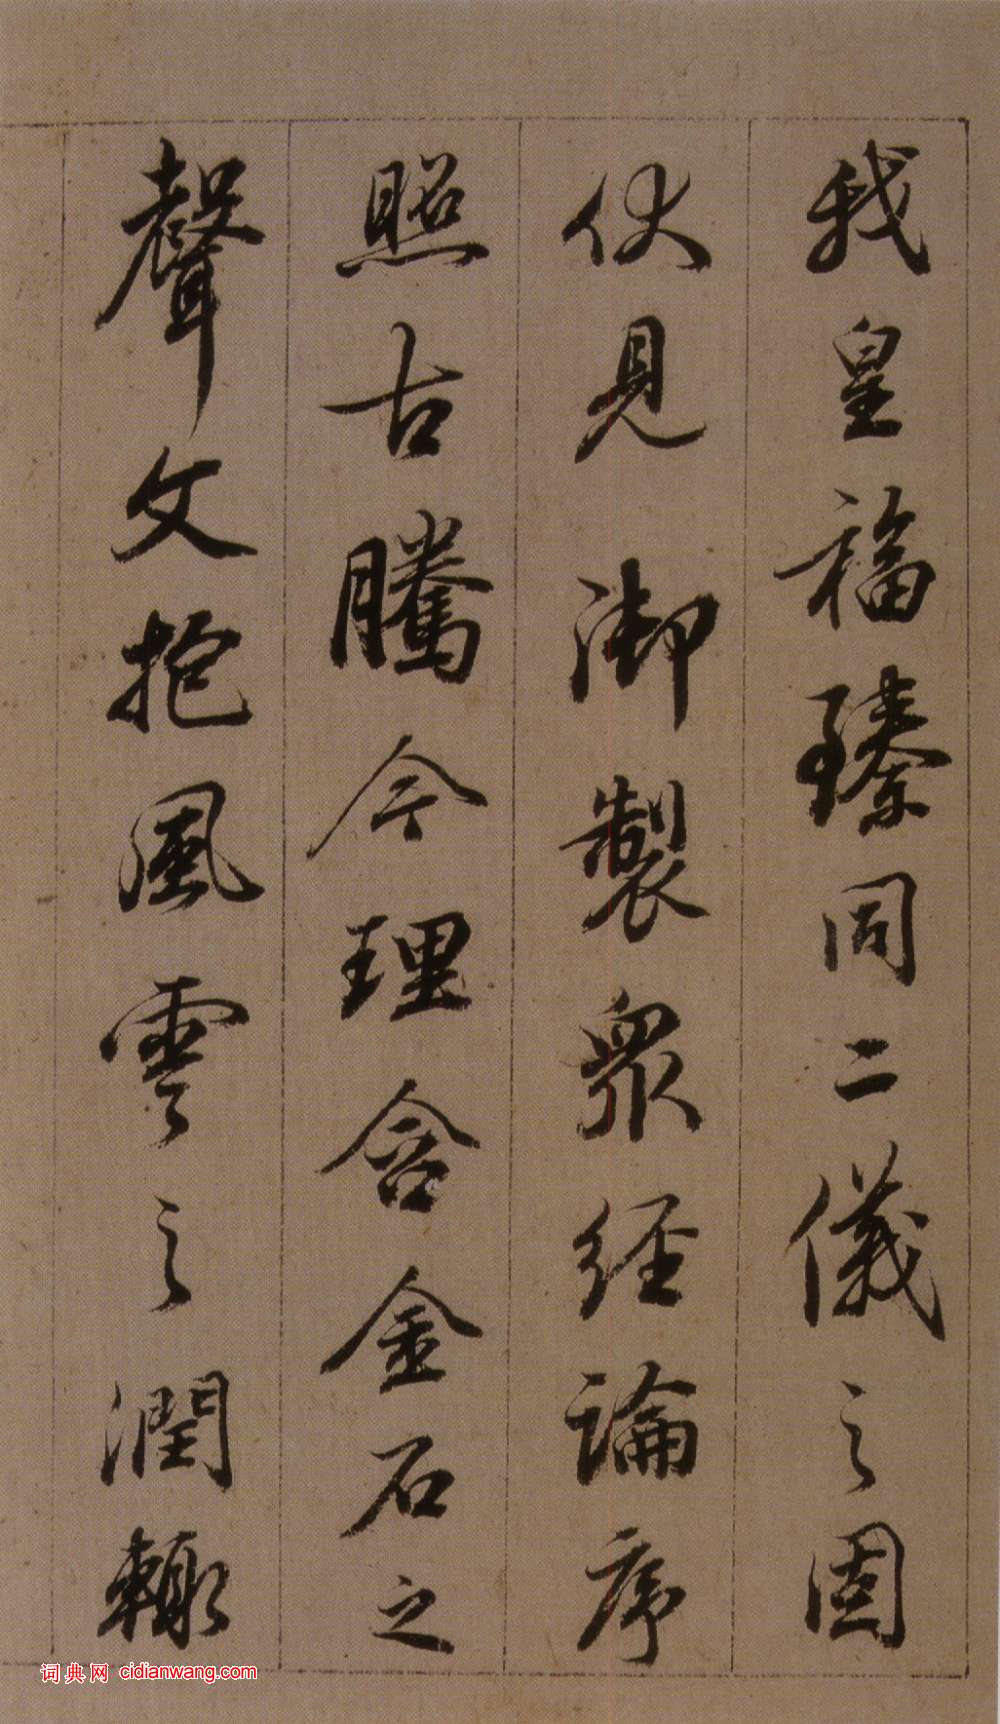 我皇福臻同二儀之固
伏見御製眾經論序
照古騰今理含金石之
聲文抱風雲之潤輙
词典网 cidianwang.com